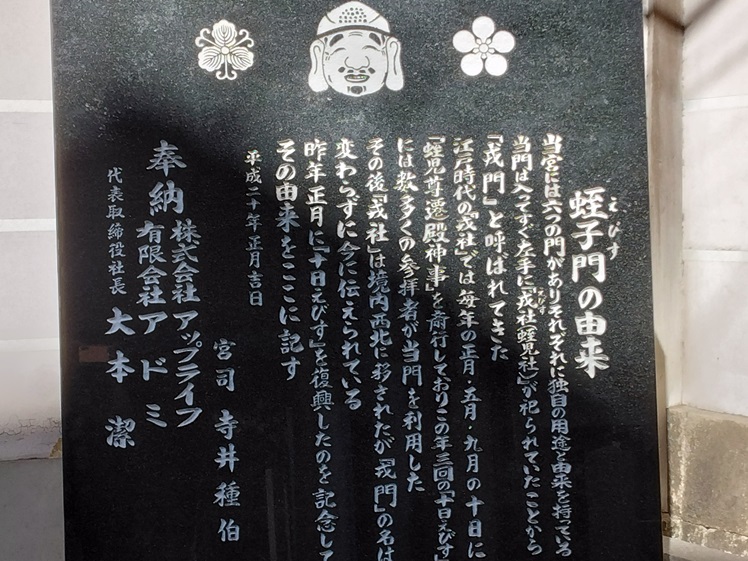 えびす
蛭子門の由来
当宮には六つの門がありそれぞれに独自の用途と由来を持っている
当門は入ってすぐ左手に「戎社(蛭児社)」が祀られていたことから
えびす
「戎門」と呼ばれてきた
江戸時代の「戎社」では毎年の正月・五月・九月の十日に
「蛭児尊遷殿神事」を斎行しておりこの年三回の「十日えびす」
には数多くの参拝者が当門を利用した
その後「戎社」は境内西北に移されたが「戎門」の名は
変わらずに今に伝えられている
昨年正月に「十日えびす」を復興したのを記念して
その由来をここに記す
平成二十年正月吉日
宮司 寺井種伯
奉納 株式会社 アップライフ
有限会社 アドミ
代表取締役社長 大本潔